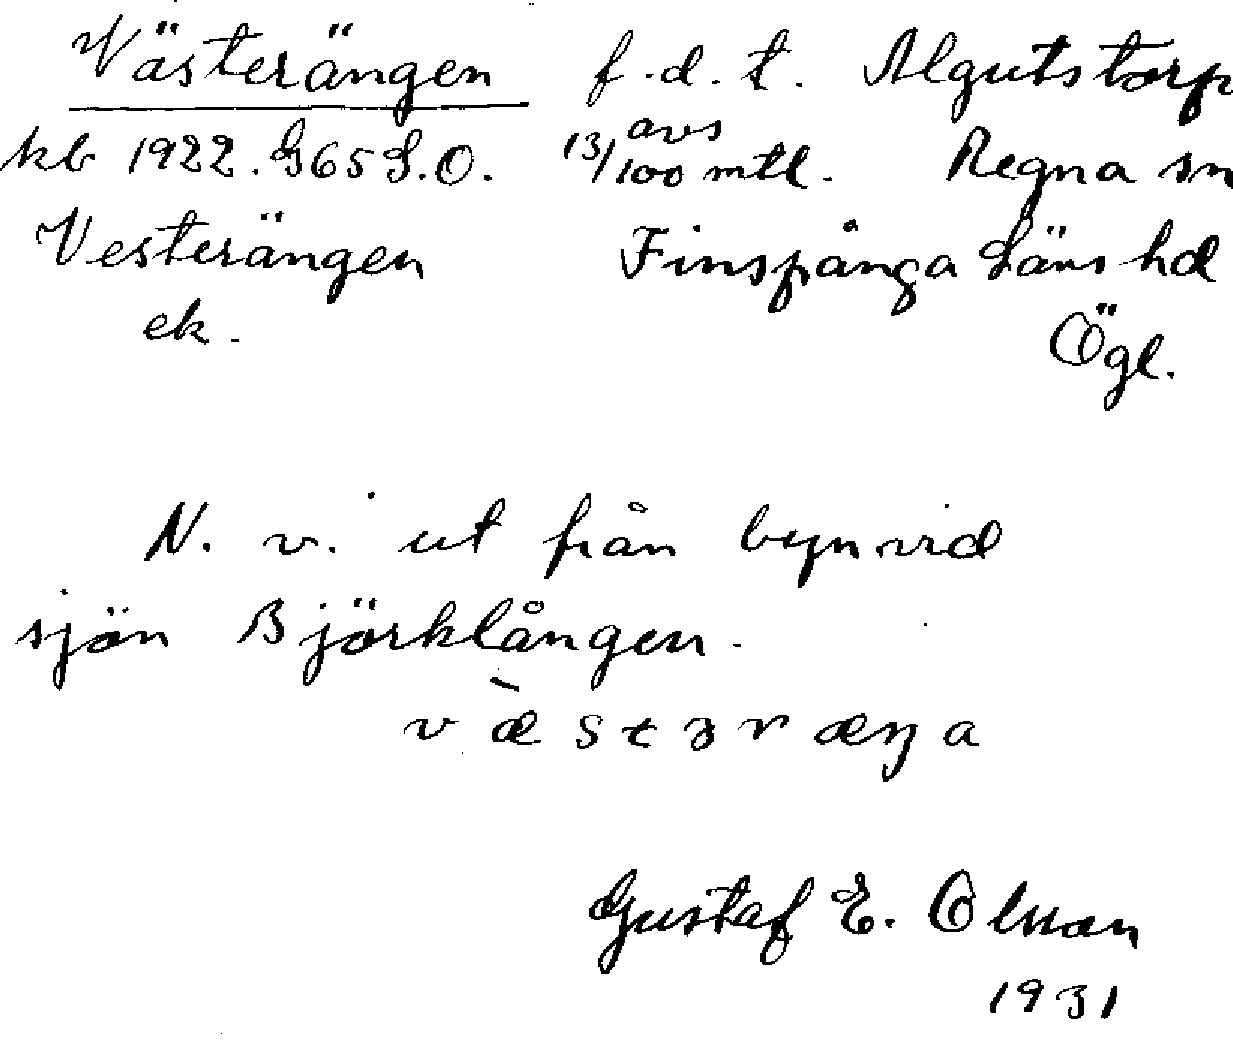 Västerängen f.d.t. Algutstorp
kb 1922. G65S.O. 13/100 avs mtl. Regna sn
Vesterängen Finspånga Läns hd
ek. Ögl.
N. v. ut från byn vid
sjön Björklången.
v æ̀ s t ɜ r æŋ a
Gustaf E. Olsson
1931